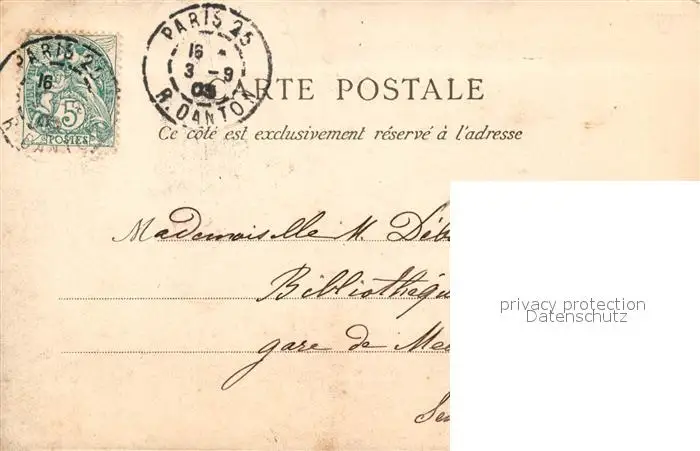 PARIS 25
16
3 - 9
R. DANTON
PARIS 25
16
R. DANTON
5c
POSTES
CARTE POSTALE
Ce côté est exclusivement réservé à l'adresse
Mademoiselle M. Déb
Bibliothéqu
gare de Me
Se
privacy protection
Datenschutz